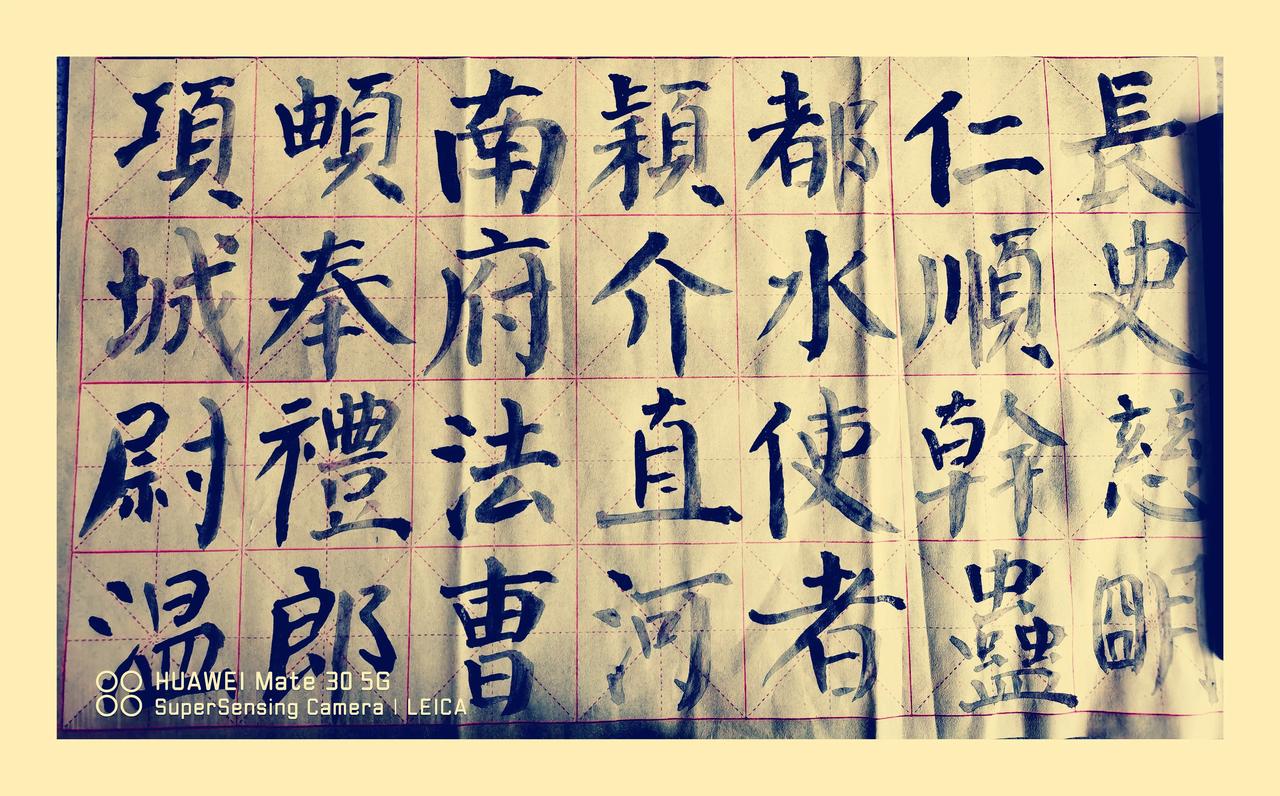 長史慈明
仁順幹蠱
都水使者
穎介直河
南府法曹
頔奉禮郎
項城尉温
HUAWEI Mate 30 5G
SuperSensing Camera | LEICA